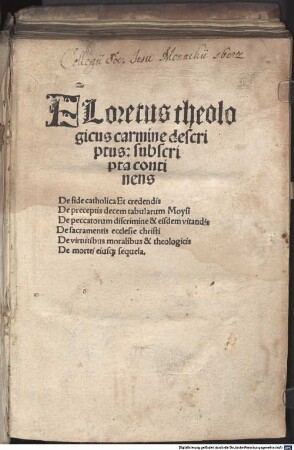 Collegii Soc. Jesu Monachii
FLoretus theolo
gicus carmine descri
ptus: subscri
pta conti
nens
De fide catholica Et credendis
De preceptis decem tabularum Moysi
De peccatorum discrimine & eisdem vitandis
De sacramentis ecclesie christi
De virtutibus moralibus & theologicis
De morte/ eiusq; sequela.